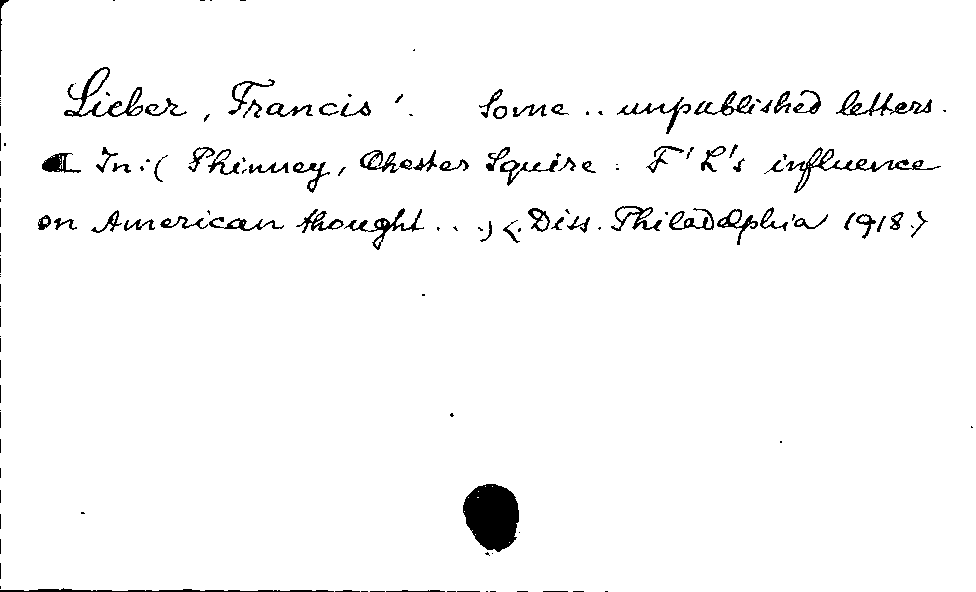 Lieber, Francis'. Some .. unpublished letters.
In: ( Phinney, Chester Squire : F' L's influence
on American thought . . .) <. Diss. Philadelphia 1918.>